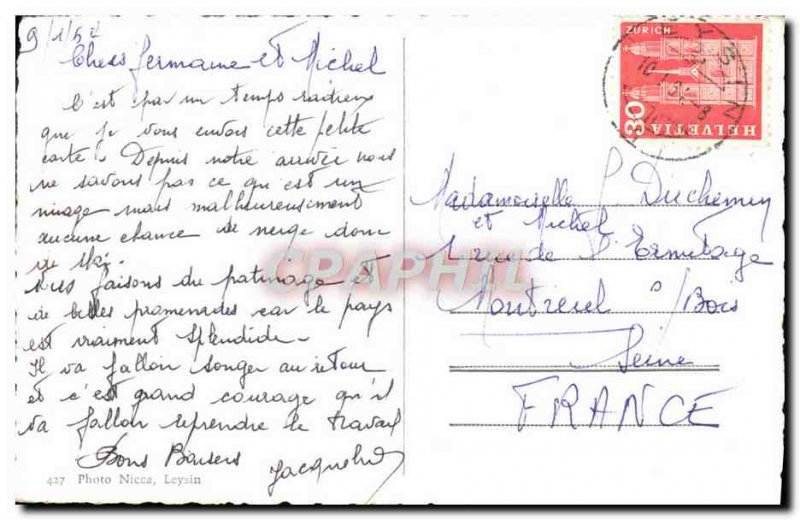 Chers Germaine et Michel
C'est par un temps radieux
que je vous envois cette petite
carte. Depuis notre arriver nous
ne savons pas ce qu'est un
nuage mais malheureusement
aucune chance de neige donc
de ski.
Nous faisons du patinage et
de belles promenades car le pays
est vraiment splendide.
Il va falloir songer au retour
et c'est grand courage qu'il
va falloir reprendre le travail
Bons Baisers
427 Photo Nicca, Leysin
ZURICH
80
HELVETIA
Mademoiselle Duchemin
et Michel
rue de l'Ermitage
Montreuil s/Bois
Seine
FRANCE
CPAPHIL